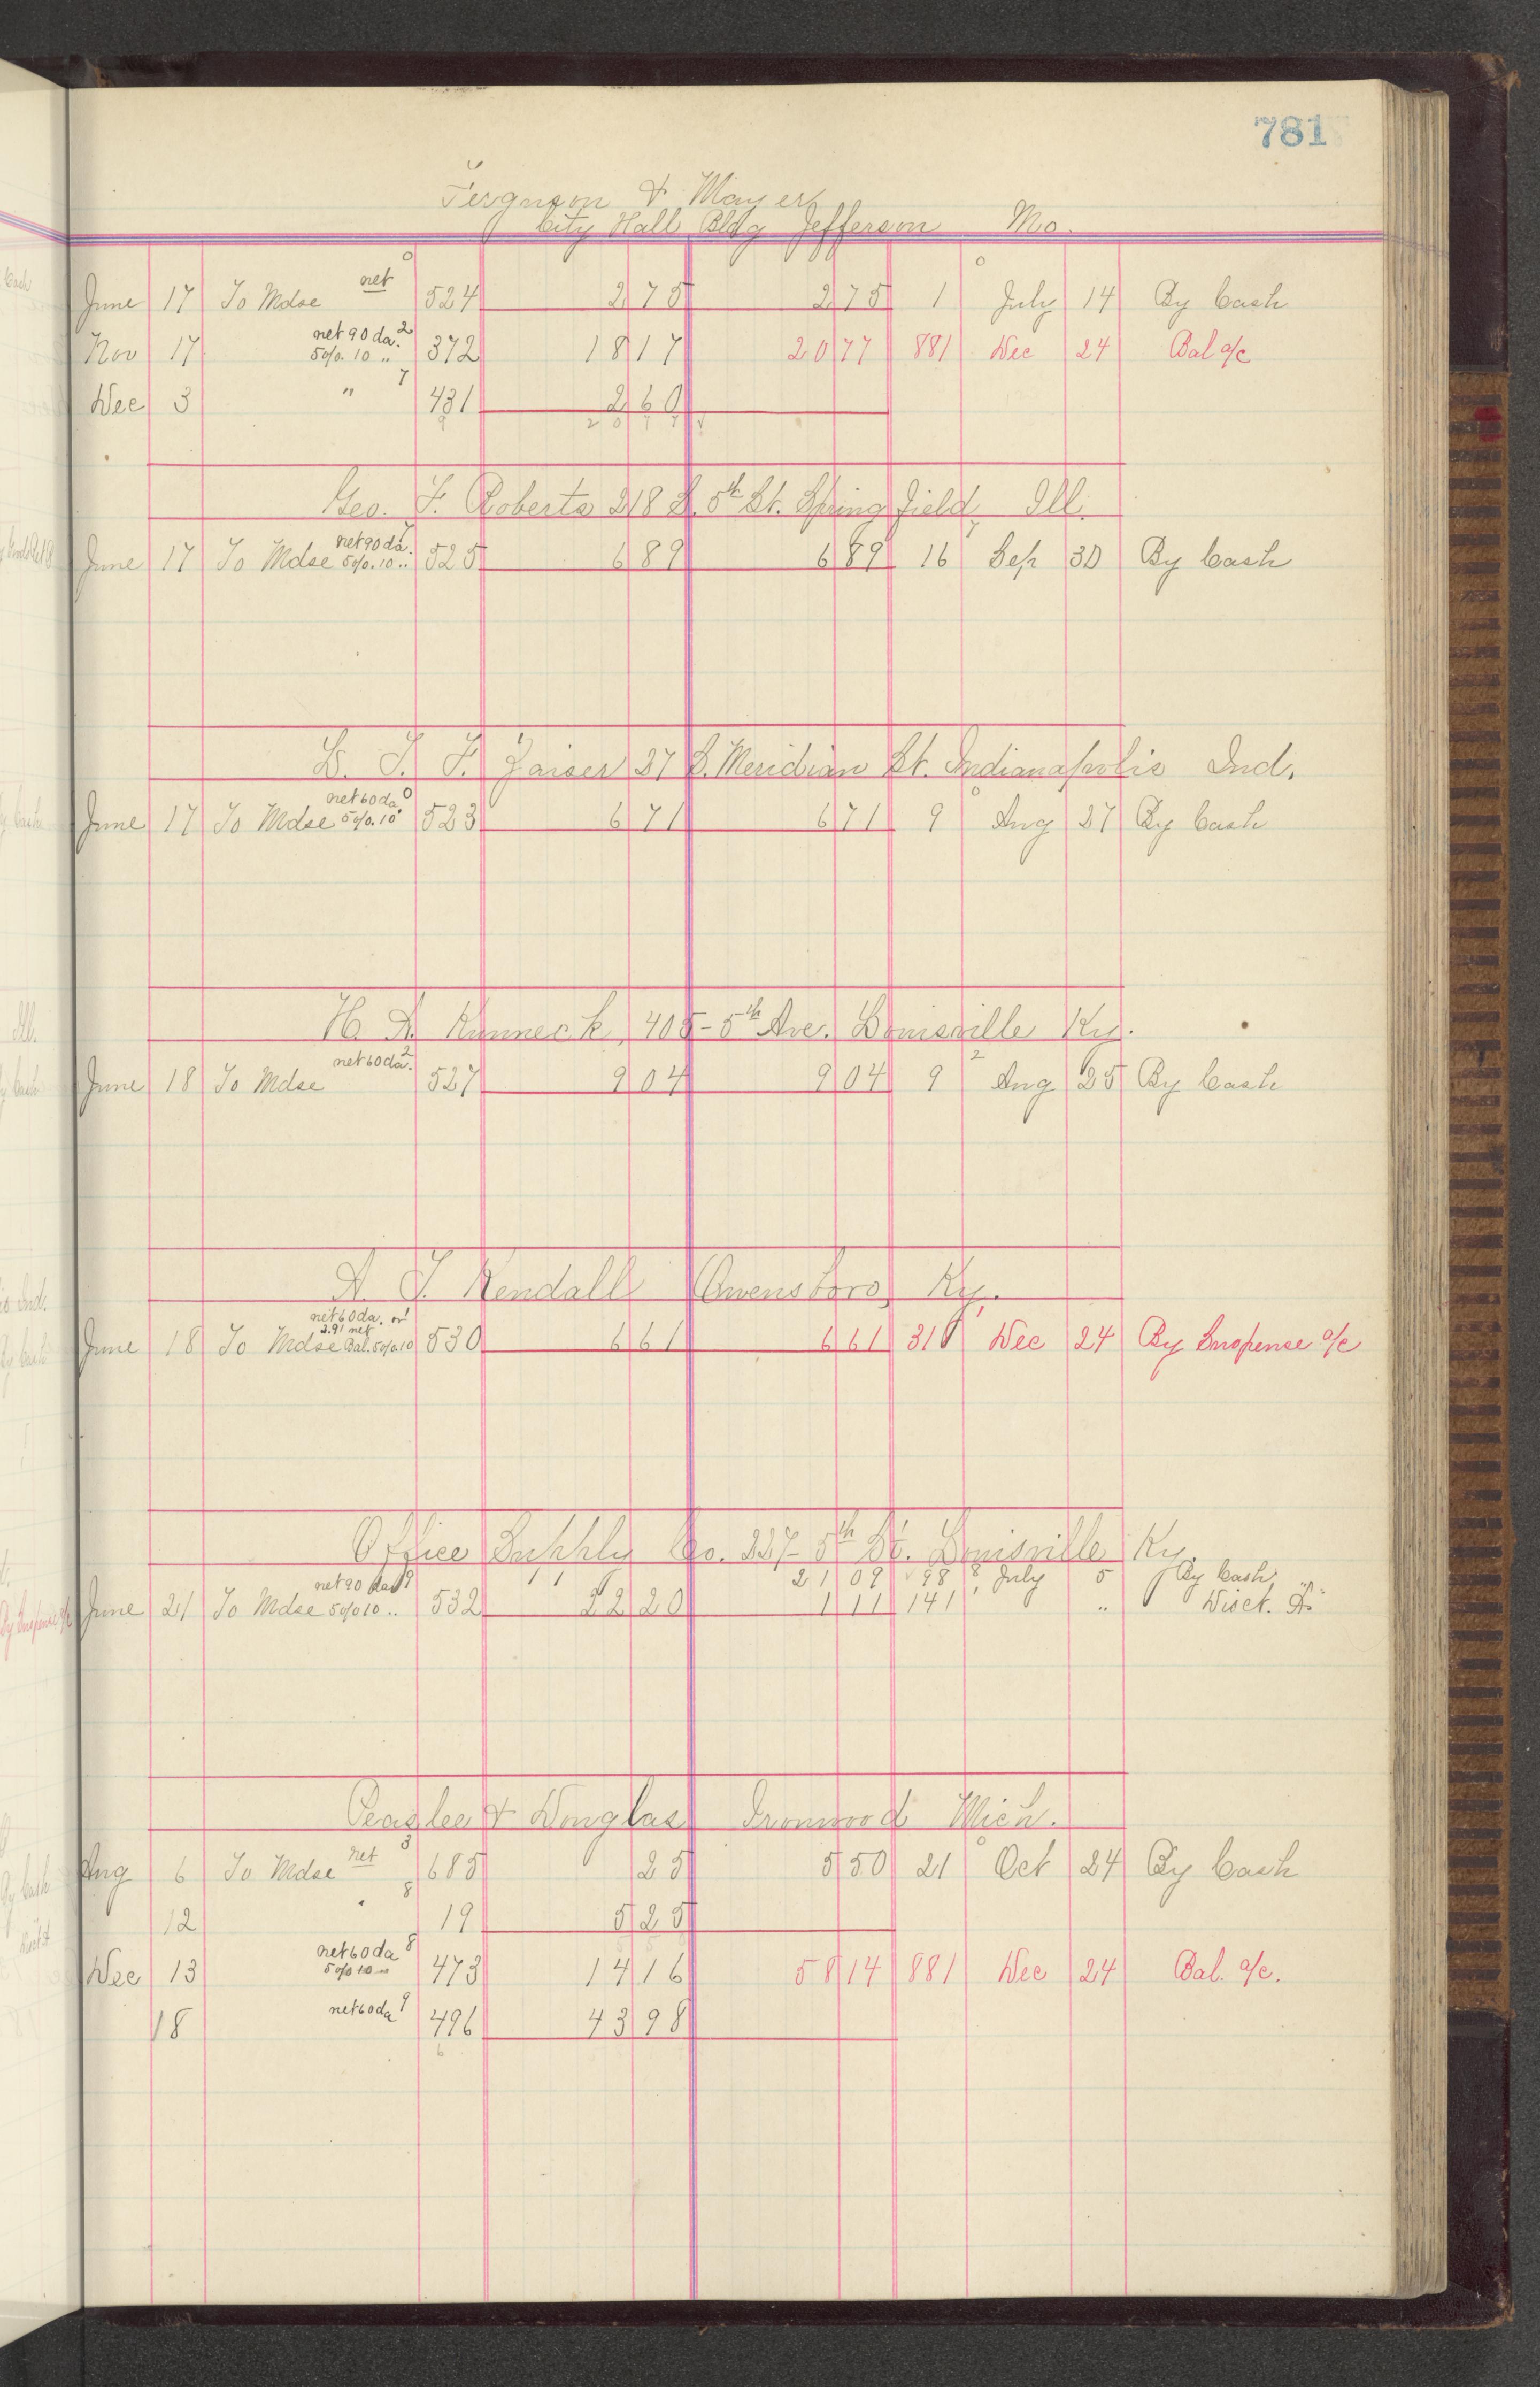 781
Ferguson & Mayer
City Hall Bldg Jefferson Mo.
June 17 To Mdse net 0 524 2 75 2 75 1 0 July 14 By Cash
Nov 17 net 90 da. 2 5% 10 " 372 18 17 20 77 881 Dec 24 Bal a/c
Dec 3 " 7 431 2 60
20 77
Geo. F. Roberts 218 S. 5th St. Springfield, Ill.
June 17 To Mdse net 90 da. 5% 10 " 525 6 89 6 89 16 7 Sep 30 By Cash
D. T. F. Zaiser 27 S. Meridian St. Indianapolis Ind.
June 17 To Mdse net 60 da. 0 5% 10 " 523 6 71 6 71 9 0 Aug 27 By Cash
H. A. Kunneck, 405-5th Ave. Louisville Ky.
June 18 To Mdse net 60 da. 2 527 9 04 9 04 9 2 Aug 25 By Cash
A. T. Kendall Owensboro, Ky.
June 18 To Mdse net 60 da. or 2.91 net Bal. 5% 10 530 6 61 6 61 310 Dec 24 By Suspense a/c
Office Supply Co. 227-5th St. Louisville Ky.
21 09 98 8 July 5 By Cash
June 21 To Mdse net 90 da 9 5% 10 " 532 22 20 1 11 141 " Disct. "A"
Peaslee & Douglas Ironwood Mich.
Aug 6 To Mdse net 3 685 25 5 50 21 0 Oct 24 By Cash
12 " 8 19 5 25
Dec 13 net 60 da 8 5% 10 " 473 14 16 58 14 881 Dec 24 Bal. a/c.
18 net 60 da 9 496 43 98